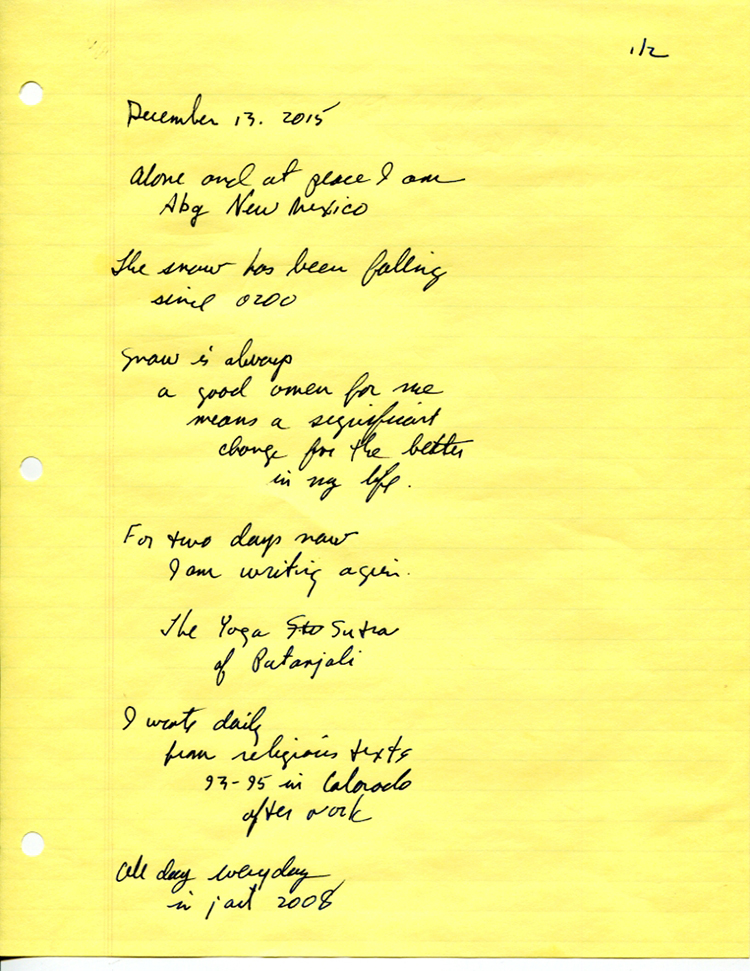 1/2
December 13. 2015
Alone and at peace I am
Abq New Mexico
The snow has been falling
since 0200
Snow is always
a good omen for me
means a significant
change for the better
in my life.
For two days now
I am writing again.
The Yoga Sutra
of Patanjali
I wrote daily
from religious texts
93-95 in Colorado
after work
All day everyday
in jail 2008